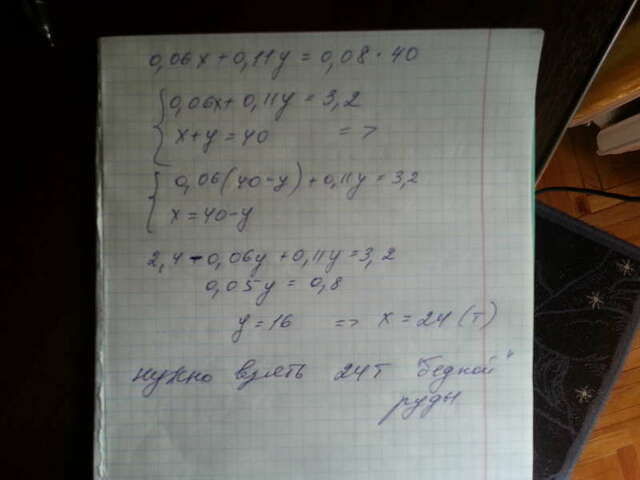 0,06x + 0,11y = 0,08 · 40
0,06x + 0,11y = 3,2
x + y = 40 =>
0,06(40-y) + 0,11y = 3,2
x = 40-y
2,4 - 0,06y + 0,11y = 3,2
0,05y = 0,8
y = 16 => x = 24 (т)
нужно взять 24т "бедной"
руды